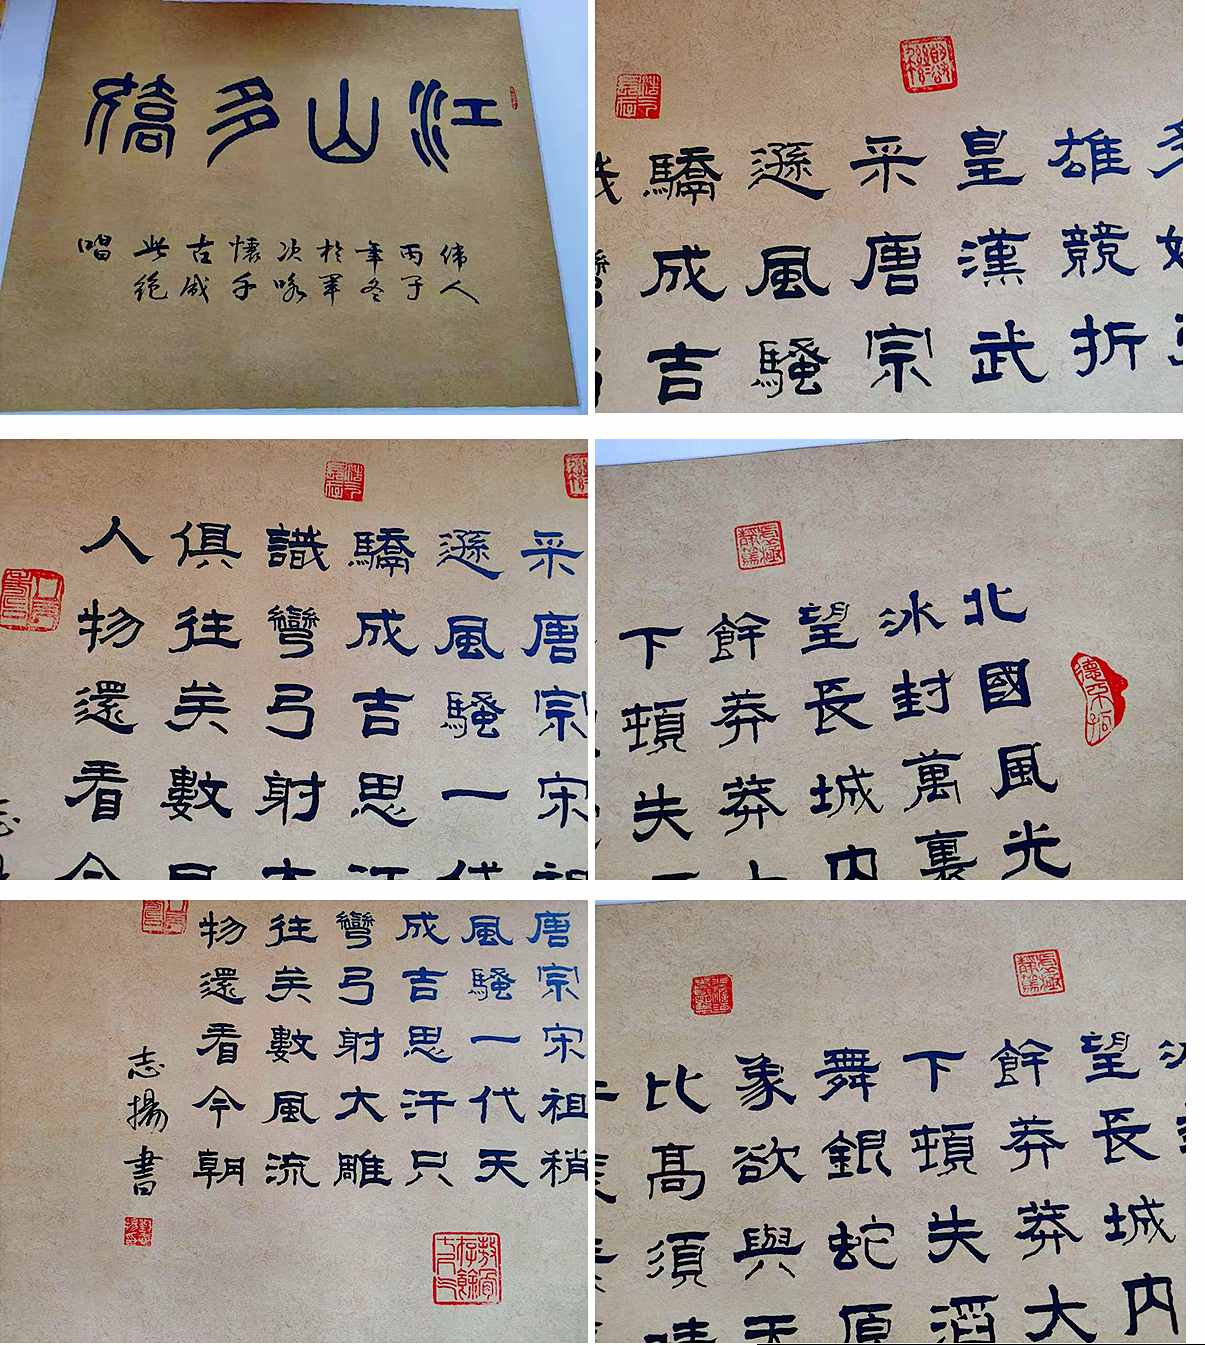 江山多嬌
伟人
丙子
年冬
於軍
次咏
懷千
古成
此绝
唱
雄競折
皇漢武
采唐宗
遜風騷
驕成吉
采唐宗宋
遜風騷一代
驕成吉思汗
識彎弓射大
俱往矣數風
人物還看今
北國風光
冰封萬裏
望長城内
餘莽莽
下頓失
唐宗宋祖稍
風騷一代天
成吉思汗只
彎弓射大雕
往矣數風流
物還看今朝
志揚書
望長城内
餘莽莽大
下頓失滔
舞銀蛇原
象欲與天
比高須晴